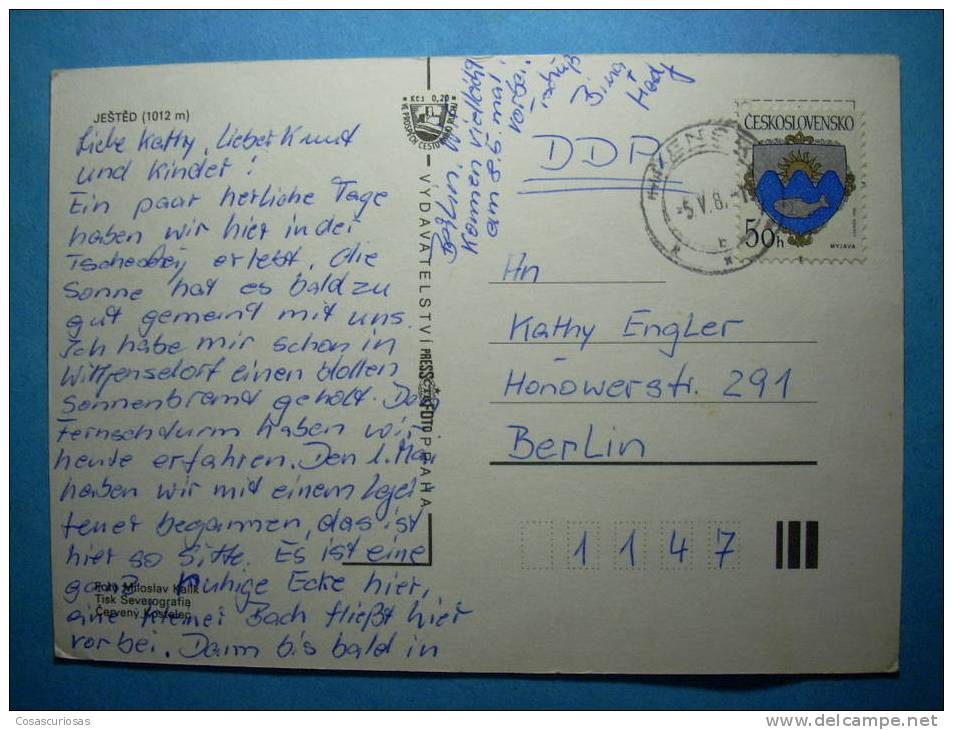 JEŠTĚD (1012 m)
Liebe Kathy, Lieber Knud
und Kinder!
Ein paar herliche Tage
haben wir hier in der
erlebt. Die
Sonne hat es bald zu
gut gemeind mit uns.
Ich habe mir schon in
einen tollen
Sonnenbrand geholt. Den
Fernsehturm haben wir
heute erfahren. Den 1. Mai
haben wir mit einem
begannen, das ist
hier so Sitte. Es ist eine
ganz Ruhige Ecke hier,
eine kleiner Bach fließt hier
vorbei. Dann bis bald in
Foto Miloslav Kalík
Tisk Severografia
Červený Kostelec
VYDAVATELSTVÍ PRESSFOTO PRAHA
Kčs 0,20
VE PROSPĚCH CESTOVNÍHO RUCHU
am 8.5. und
DDR
ČESKOSLOVENSKO
50h
MYJAVA
-5.V.8
An
Kathy Engler
Hönowerstr. 291
Berlin
1147
Cosascuriosas
www.delcampe.net